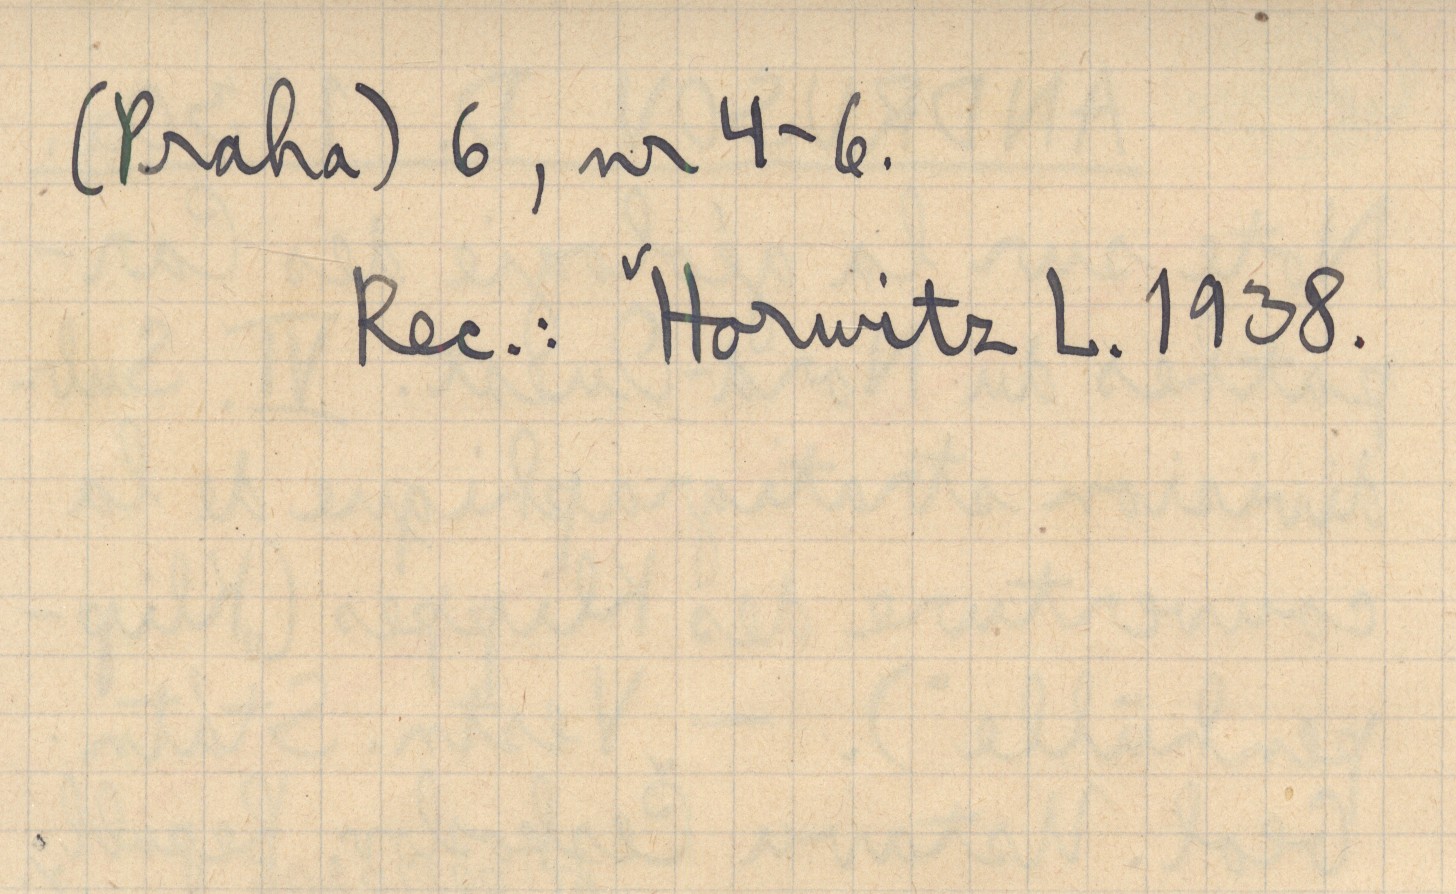 (Praha) 6, nr 4-6.
Rec.: ᵛHorwitz L. 1938.